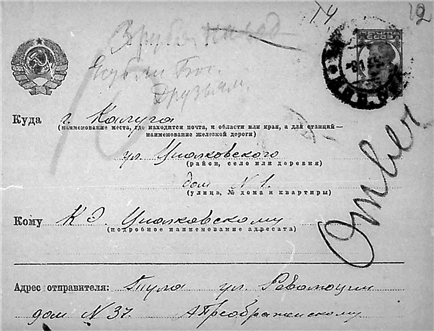 14 12
Друзьям.
Куда г. Калуга
(наименование места, где находится почта, и области или края, а для станций—
наименование железной дороги)
ул. Циолковского
(район, село или деревня)
дом № 1.
(улица, № дома и квартиры)
Кому К. Э. Циолковскому
(подробное наименование адресата)
Ответ
Адрес отправителя: Тула ул. Революции
дом № 37. А Преображенскому